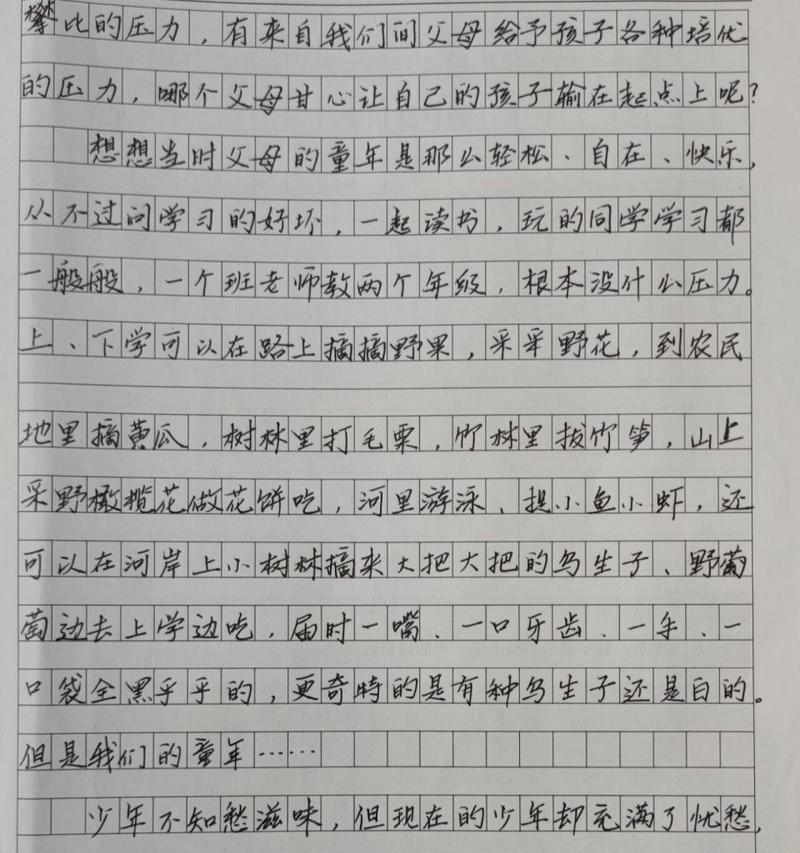 攀比的压力，有来自我们间父母给予孩子各种培优
的压力，哪个父母甘心让自己的孩子输在起点上呢？
想想当时父母的童年是那么轻松、自在、快乐，
从不过问学习的好坏，一起读书，玩的同学学习都
一般般，一个班老师教两个年级，根本没什么压力。
上、下学可以在路上摘摘野果，采采野花，到农民
地里摘黄瓜，树林里打毛栗，竹林里拔竹笋，山上
采野橄榄花做花饼吃，河里游泳、捉小鱼小虾，还
可以在河岸上小树林摘来大把大把的乌生子、野葡
萄边去上学边吃，届时一嘴、一口牙齿、一手、一
口袋全黑乎乎的，更奇特的是有种乌生子还是白的。
但是我们的童年……
少年不知愁滋味，但现在的少年却充满了忧愁，